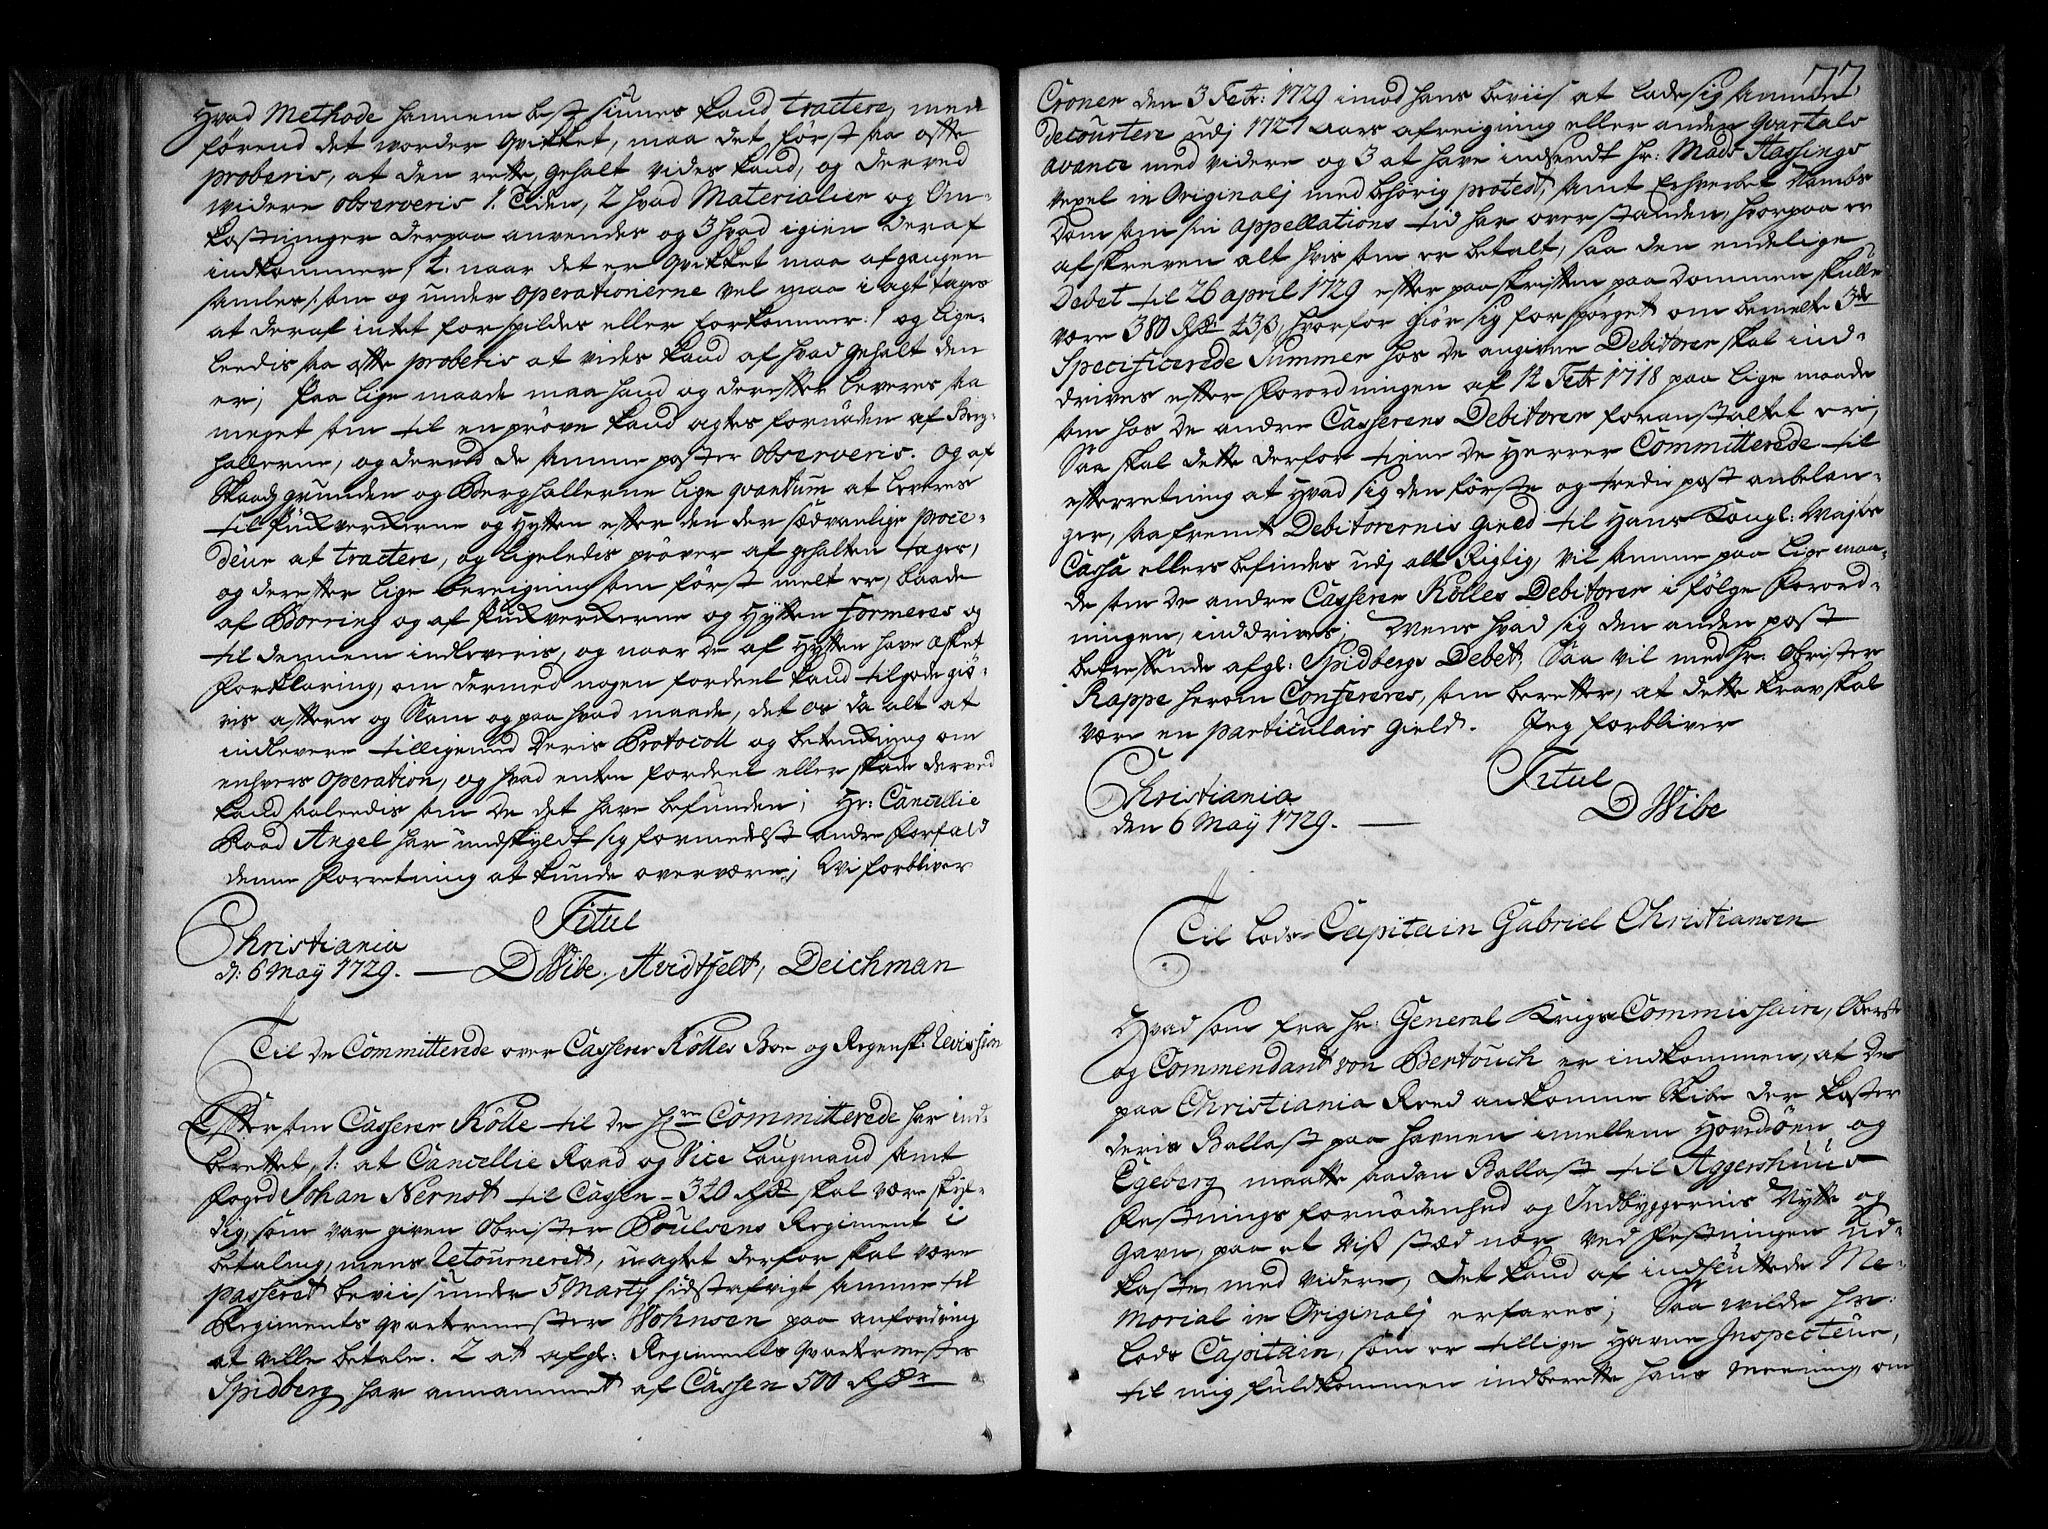 Hvad Methode hannem best siunes kand tractere, men
førend det worder Qvikket, maa det først saa ofte
proberis, at den rette gehalt vides kand, og derved
widere observeris 1. Tiden, 2 hvad Materialier og Om-
kostninger derpaa anvendes og 3 hvad igien deraf
indkommer, 4. naar det er Qvikket maa afgangen
samles /: som og under operationerne vel maa i agt tages
at deraf intet forspildes eller forkommer :/ og lige-
leedis saa ofte proberis at vides kand af hvad gehalt den
er; Paa lige maade maa hand og derefter leveres saa
meget som til en prøve kand agtes fornøden af Berg-
hallerne, og derved de samme poster observeris. Og af
Skaads grunden og Berghallerne lige qvantum at leveres
til Pukverkerne og Hytten efter den der sædvanlige proce-
deur at tractere, og ligeledis prøver af gehalten tages,
og derefter lige bereigning som først melt er, baade
af Borring og af Pukverkerne og Hytten formeres og
til dennem indleveris, og naar de af Hytten have æsket
forklaring, om dermed nogen fordeel kand tilgode giø-
ris afteren og Slam og paa hvad maade, det os da alt at
indlevere tilligemed deris Protocoll og betenkning om
enhvers operation, og hvad enten fordeel eller skade derved
kand saaledis som de det have befunden; Hr: Cancellie
Raad Angel har undskyldt sig formedelst andre forfald
denne forretning at kunde overvære; Wi forbliver
Titul
Christiania
d: 6 May 1729. — D Wibe, Hvidtfelt, Deichman
Til de Committerede over Casserer Kölles Boe og Regensk: Revission
Eftersom Casserer Kölle til de Hrrn Committerede har ind-
berettet, 1: at Cancellie Raad og Vice Laugmand samt
foged Johan Nernst til Cassen - 340 Rdr skal være skyl-
dig, som var given Obrister Poulsens Regiment i
betaling, mens retourneret, uagtet derfor skal være
passeret beviis under 5 Marty sidstafvigt samme til
Regiments qvarteermester Wohnsen paa anfordring
at ville betale. 2 at afgl: Regiments Qvarteermester
Spidberg har annammet af Cassen 500 Rdr
77
Croner den 3 Febr: 1729 imod hans beviis at lade sig samme
decourtere udj 1727 aars afreigning eller anden qvartals
avance med videre og 3 at have indsendt hr: Mads Hassings
vexel in Originalj med behørig protest, samt Erhverbet Nambs
dom som sin appellations tid har overstanden, hvorpaa er
afskreven alt hvis som er betalt, saa den endelige
Debet til 26 april 1729 efter paaskriften paa dommen skulle
være 380 Rdr 43 ß, hvorfor giør sig forspørget om bemelte 3de
Specificerede Summer hos de angivne Debitorer skal ind-
drives efter forordningen af 14 Febr 1718 paa lige maade
som hos de andre Casserens Debitorer foranstaltet er;
Saa skal dette derfor tiene de Herrer Committerede til
efterretning at hvad sig den første og tredie post anbelan-
ger, saa fremt Debitorernis gield til Hans Kongl: Majts
Cassa ellers befindes udj alt Rigtig, vil samme paa lige maa-
de som de andre Casserer Kölles Debitorer i følge Forord-
ningen, inddrives; Mens hvad sig den anden post
betreffende afgl: Spidbergs Debet, Saa vil med hr: Obrister
Rappe herom Confereres, som beretter, at dette krav skal
være en particulair gield. Jeg forbliver
Titul
Christiania
D Wibe
den 6 May 1729. —
Til Lods-Capitain Gabriel Christiansen
Hvad som fra hr: General Krigs Commissaire, Oberst
og Commendant von Bertouch er indkommen, at de
paa Christiania Reed ankomne Skibe der kaster
deris Ballast paa havnen imellem Hovedöen og
Egeberg maatte saadan Ballast til Aggershuus
Festnings fornødenhed og Indbyggernis Nytte og
Gavn, paa et viß stæd nær ved Festningen Ud-
kaste, med videre, Det kand af indsluttede Me-
morial in Originalj erfares; Saa wilde hr:
Lods Capitain, som er tillige Havne Inspecteur,
til mig fuldkommen indberette hans meening, om